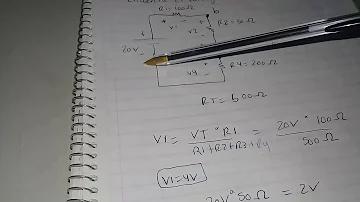 R1=100Ω
b
+ V1 -
+ V2 -
R2=50Ω
20V
+ V4 -
R4=200Ω
RT = 500Ω
V1 = VT * R1 / R1+R2+R3+R4 = 20V * 100 / 500Ω
V1=4V
20V * 50Ω = 2V